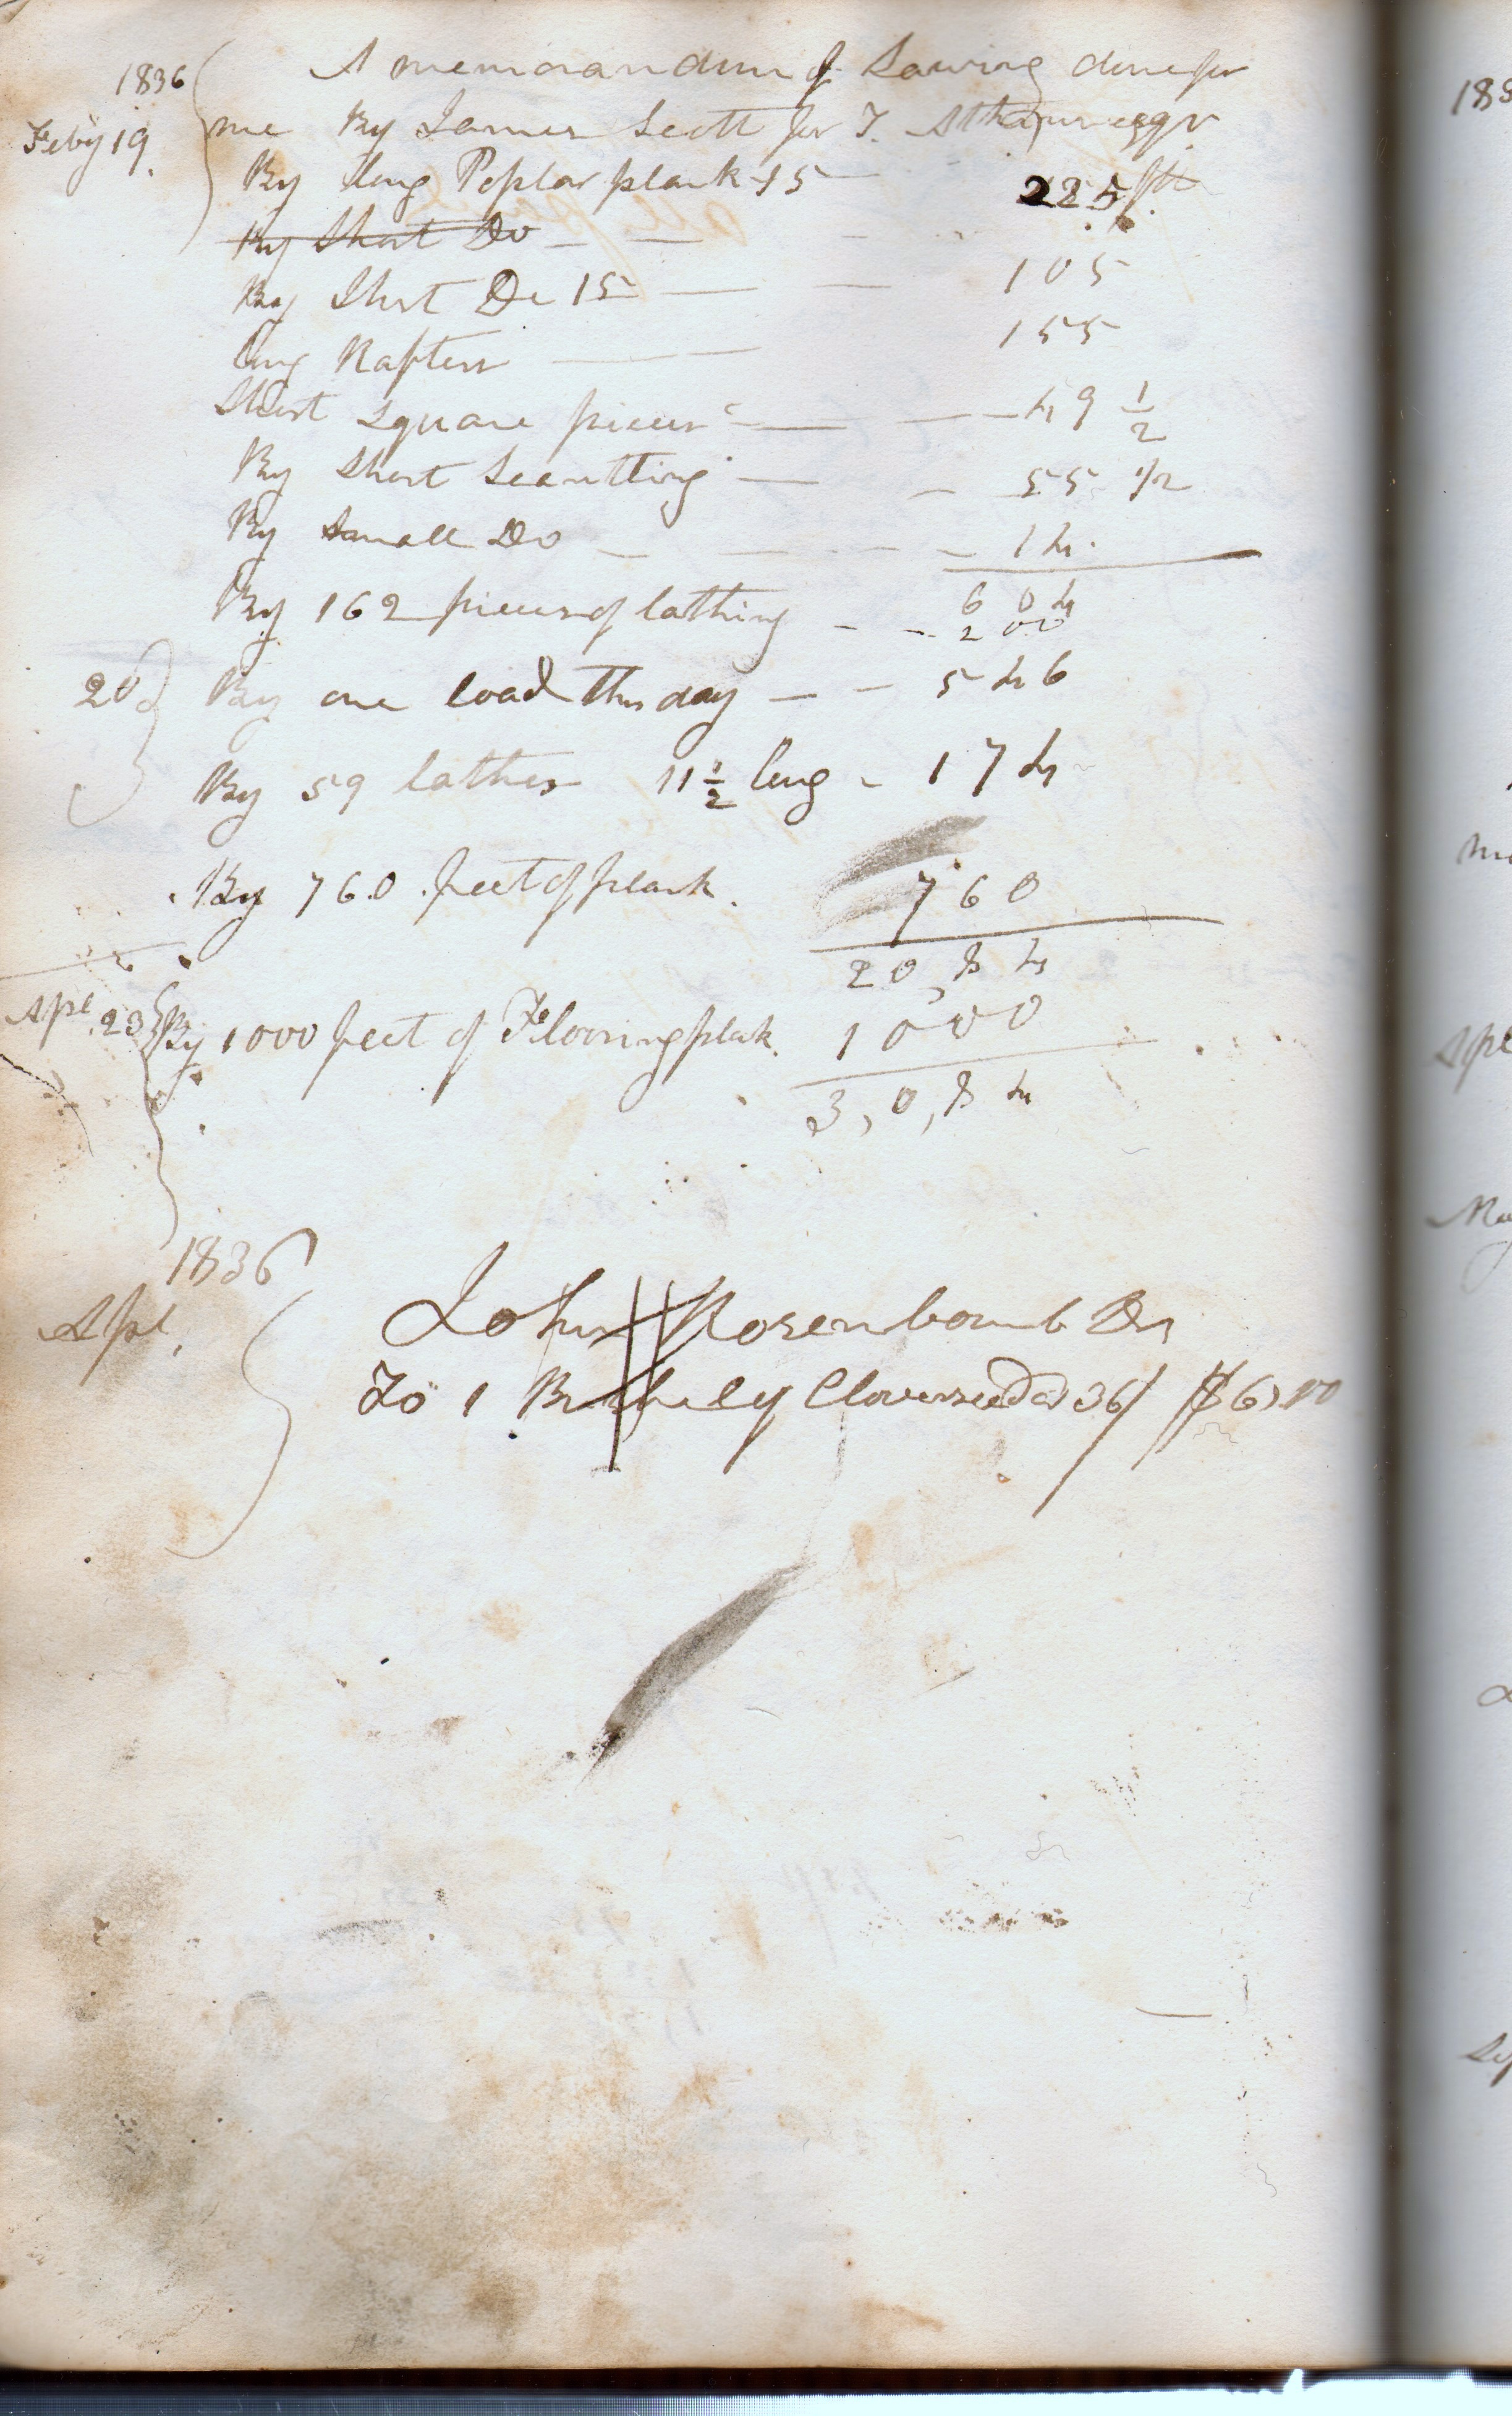 1836 A memorandum of Sawing done for
Feby 19. me By James Scott for T.
By long Poplar plank 15 — 225 ft
By Short Do — — —
By Short Do 15 — — 105
long Rafters — — 155
Short square pieces — — 49 1/2
By Short Scantling — — 55 1/2
By Small Do — — 14
604
By 162 pieces of lathing - - 200
20 By one load This day — — 546
By 59 lathes 11 1/2 long - 174
By 760 feet of plank. 760
20,84
Apl. 23 By 1000 feet of Flooring plak. 1000
3,0,84
1836
Apl. John Rosenbomb Dr
To 1 Bushely Cloverseed @ 36/ $6,00
188
Ma